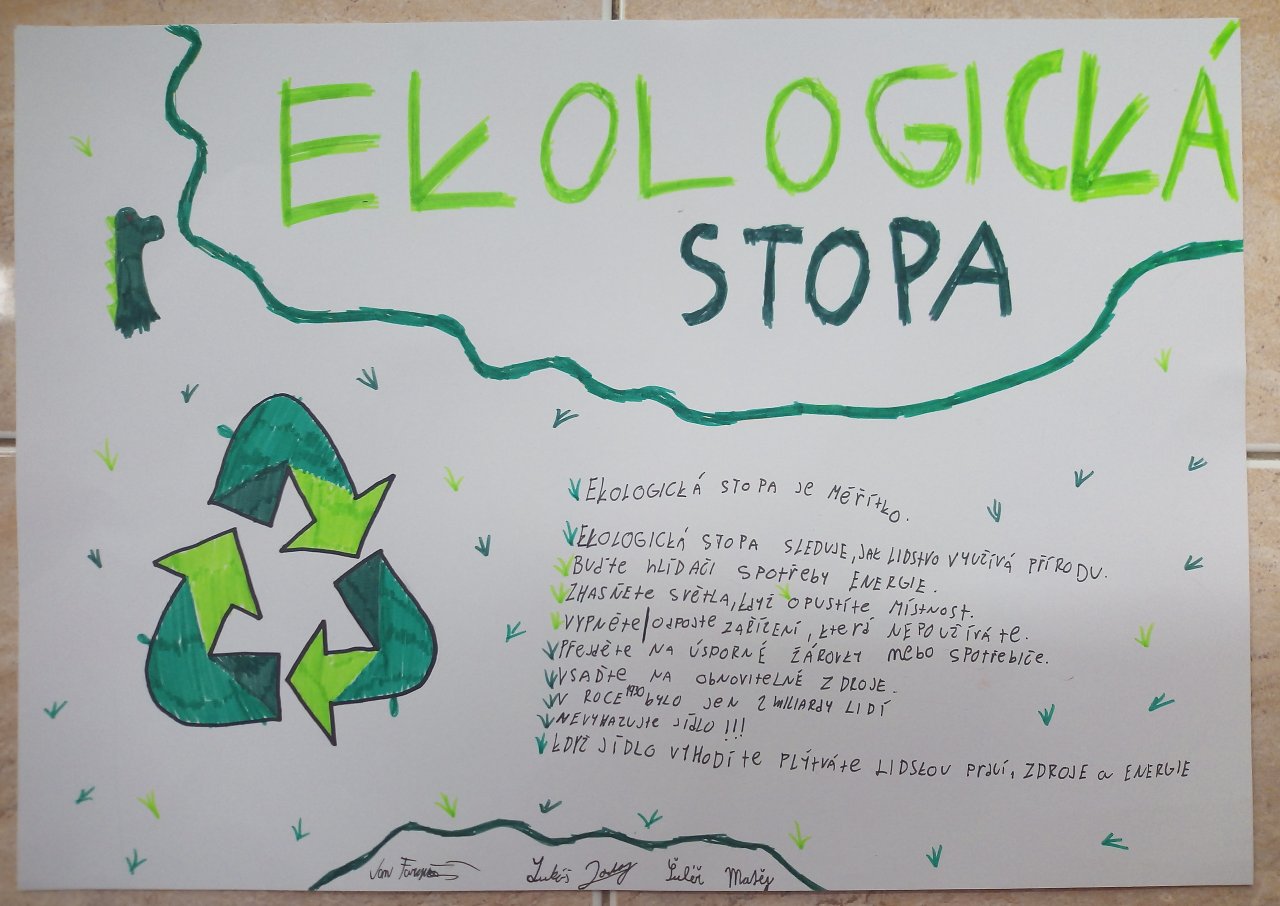 EKOLOGICKÁ
STOPA
EKOLOGICKÁ STOPA JE MĚŘÍTKO.
EKOLOGICKÁ STOPA SLEDUJE, JAK LIDSTVO VYUŽÍVÁ PŘÍRODU.
BUĎTE HLÍDAČI SPOTŘEBY ENERGIE.
ZHASNĚTE SVĚTLA, KDYŽ OPUSTÍTE MÍSTNOST.
VYPNĚTE/ODPOJTE ZAŘÍZENÍ, KTERÁ NEPOUŽÍVÁTE.
PŘEJDĚTE NA ÚSPORNÉ ŽÁROVKY NEBO SPOTŘEBIČE.
VSAĎTE NA OBNOVITELNÉ ZDROJE.
V ROCE 1930 BYLO JEN 2 MILIARDY LIDÍ
NEVYHAZUJTE JÍDLO !!!
KDYŽ JÍDLO VYHODÍTE PLÝTVÁTE LIDSKOU PRACÍ, ZDROJE A ENERGIE
Jan Lukáš Matěj